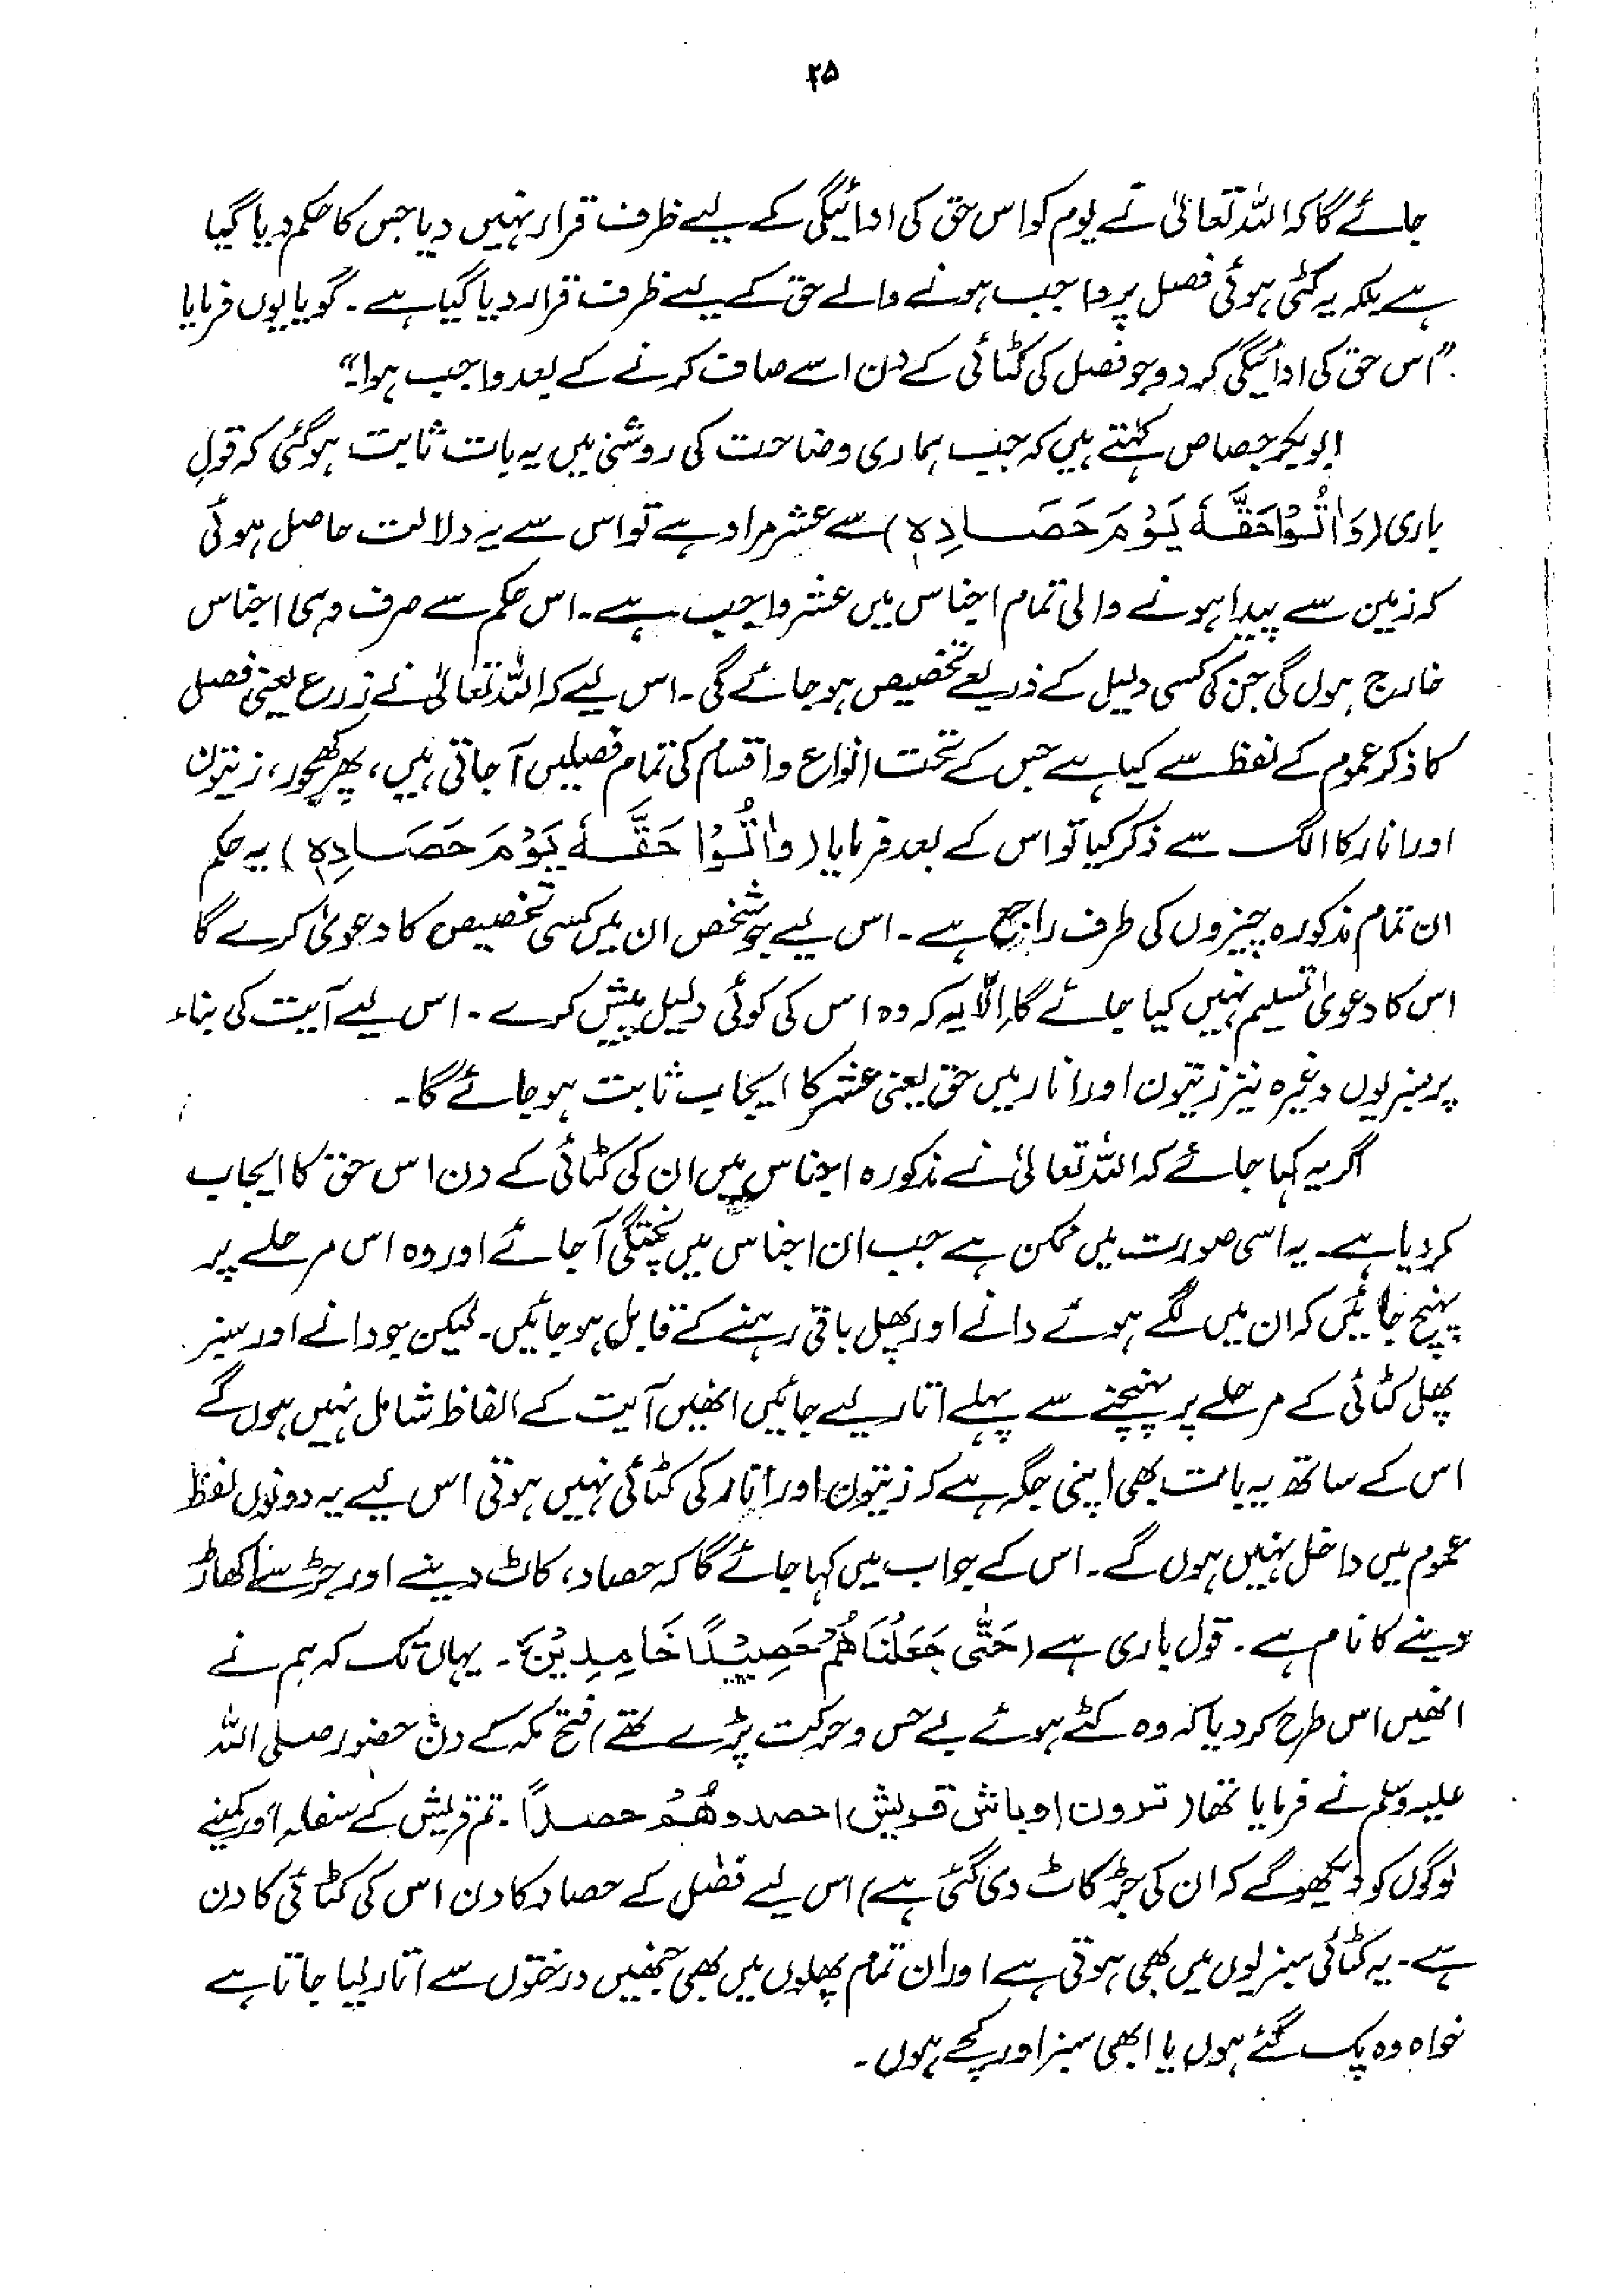 ۲۵
جائے گا کہ اللہ تعالیٰ نے یوم کو اس حق کی ادائیگی کے لیے ظرف قرار نہیں دیا جس کا حکم دیا گیا
ہے بلکہ یہ کٹی ہوئی فصل پر واجب ہونے والے حق کے لیے ظرف قرار دیا گیا ہے۔ گویا یوں فرمایا
"اس حق کی ادائیگی کر دو جو فصل کی کٹائی کے دن اسے صاف کرنے کے بعد واجب ہوا"
ابوبکر جصاص کہتے ہیں کہ جب ہماری وضاحت کی روشنی میں یہ بات ثابت ہو گئی کہ قولِ
باری (وَاٰتُوْا حَقَّهٗ يَوْمَ حَصَادِهٖ) سے عشر مراد ہے تو اس سے یہ دلالت حاصل ہوئی
کہ زمین سے پیدا ہونے والی تمام اجناس میں عشر واجب ہے۔ اس حکم سے صرف وہی اجناس
خارج ہوں گی جن کی کسی دلیل کے ذریعے تخصیص ہو جائے گی۔ اس لیے کہ اللہ تعالیٰ نے زرع یعنی فصل
کا ذکر عموم کے لفظ سے کیا ہے جس کے تحت انواع و اقسام کی تمام فصلیں آ جاتی ہیں، پھر کھجور، زیتون
اور انار کا الگ سے ذکر کیا تو اس کے بعد فرمایا (وَاٰتُوْا حَقَّهٗ يَوْمَ حَصَادِهٖ) یہ حکم
ان تمام مذکورہ چیزوں کی طرف راجع ہے۔ اس لیے جو شخص ان میں کسی تخصیص کا دعویٰ کرے گا
اس کا دعویٰ تسلیم نہیں کیا جائے گا اِلّا یہ کہ وہ اس کی کوئی دلیل پیش کرے۔ اس لیے آیت کی بناء
پر سبزیوں وغیرہ نیز زیتون اور انار میں حق یعنی عشر کا ایجاب ثابت ہو جائے گا۔
اگر یہ کہا جائے کہ اللہ تعالیٰ نے مذکورہ اجناس میں ان کی کٹائی کے دن اس حق کا ایجاب
کر دیا ہے۔ یہ اسی صورت میں ممکن ہے جب ان اجناس میں پختگی آ جائے اور وہ اس مرحلے پر
پہنچ جائیں کہ ان میں لگے ہوئے دانے اور پھل باقی رہنے کے قابل ہو جائیں۔ لیکن جو دانے اور سبز
پھل کٹائی کے مرحلے پر پہنچنے سے پہلے اتار لیے جائیں انھیں آیت کے الفاظ شامل نہیں ہوں گے
اس کے ساتھ یہ بات بھی اپنی جگہ ہے کہ زیتون اور انار کی کٹائی نہیں ہوتی اس لیے یہ دونوں لفظ
عموم میں داخل نہیں ہوں گے۔ اس کے جواب میں کہا جائے گا کہ حصاد، کاٹ دینے اور جڑ سے اکھاڑ
دینے کا نام ہے۔ قول باری ہے (حَتّٰى جَعَلْنَاهُمْ حَصِيْدًا خَامِدِيْنَ۔ یہاں تک کہ ہم نے
انھیں اس طرح کر دیا کہ وہ کٹے ہوئے بے حس و حرکت پڑے تھے) فتح مکہ کے دن حضور صلی اللہ
علیہ وسلم نے فرمایا تھا (ترون اوباش قریش احصدوھُمْ حصداً۔ تم قریش کے سفلہ اور کمینے
لوگوں کو دیکھو گے کہ ان کی جڑ کاٹ دی گئی ہے) اس لیے فصل کے حصاد کا دن اس کی کٹائی کا دن
ہے۔ یہ کٹائی سبزیوں میں بھی ہوتی ہے اور ان تمام پھلوں میں بھی جنھیں درختوں سے اتار لیا جاتا ہے
خواہ وہ پک گئے ہوں یا ابھی سبز اور کچے ہوں۔